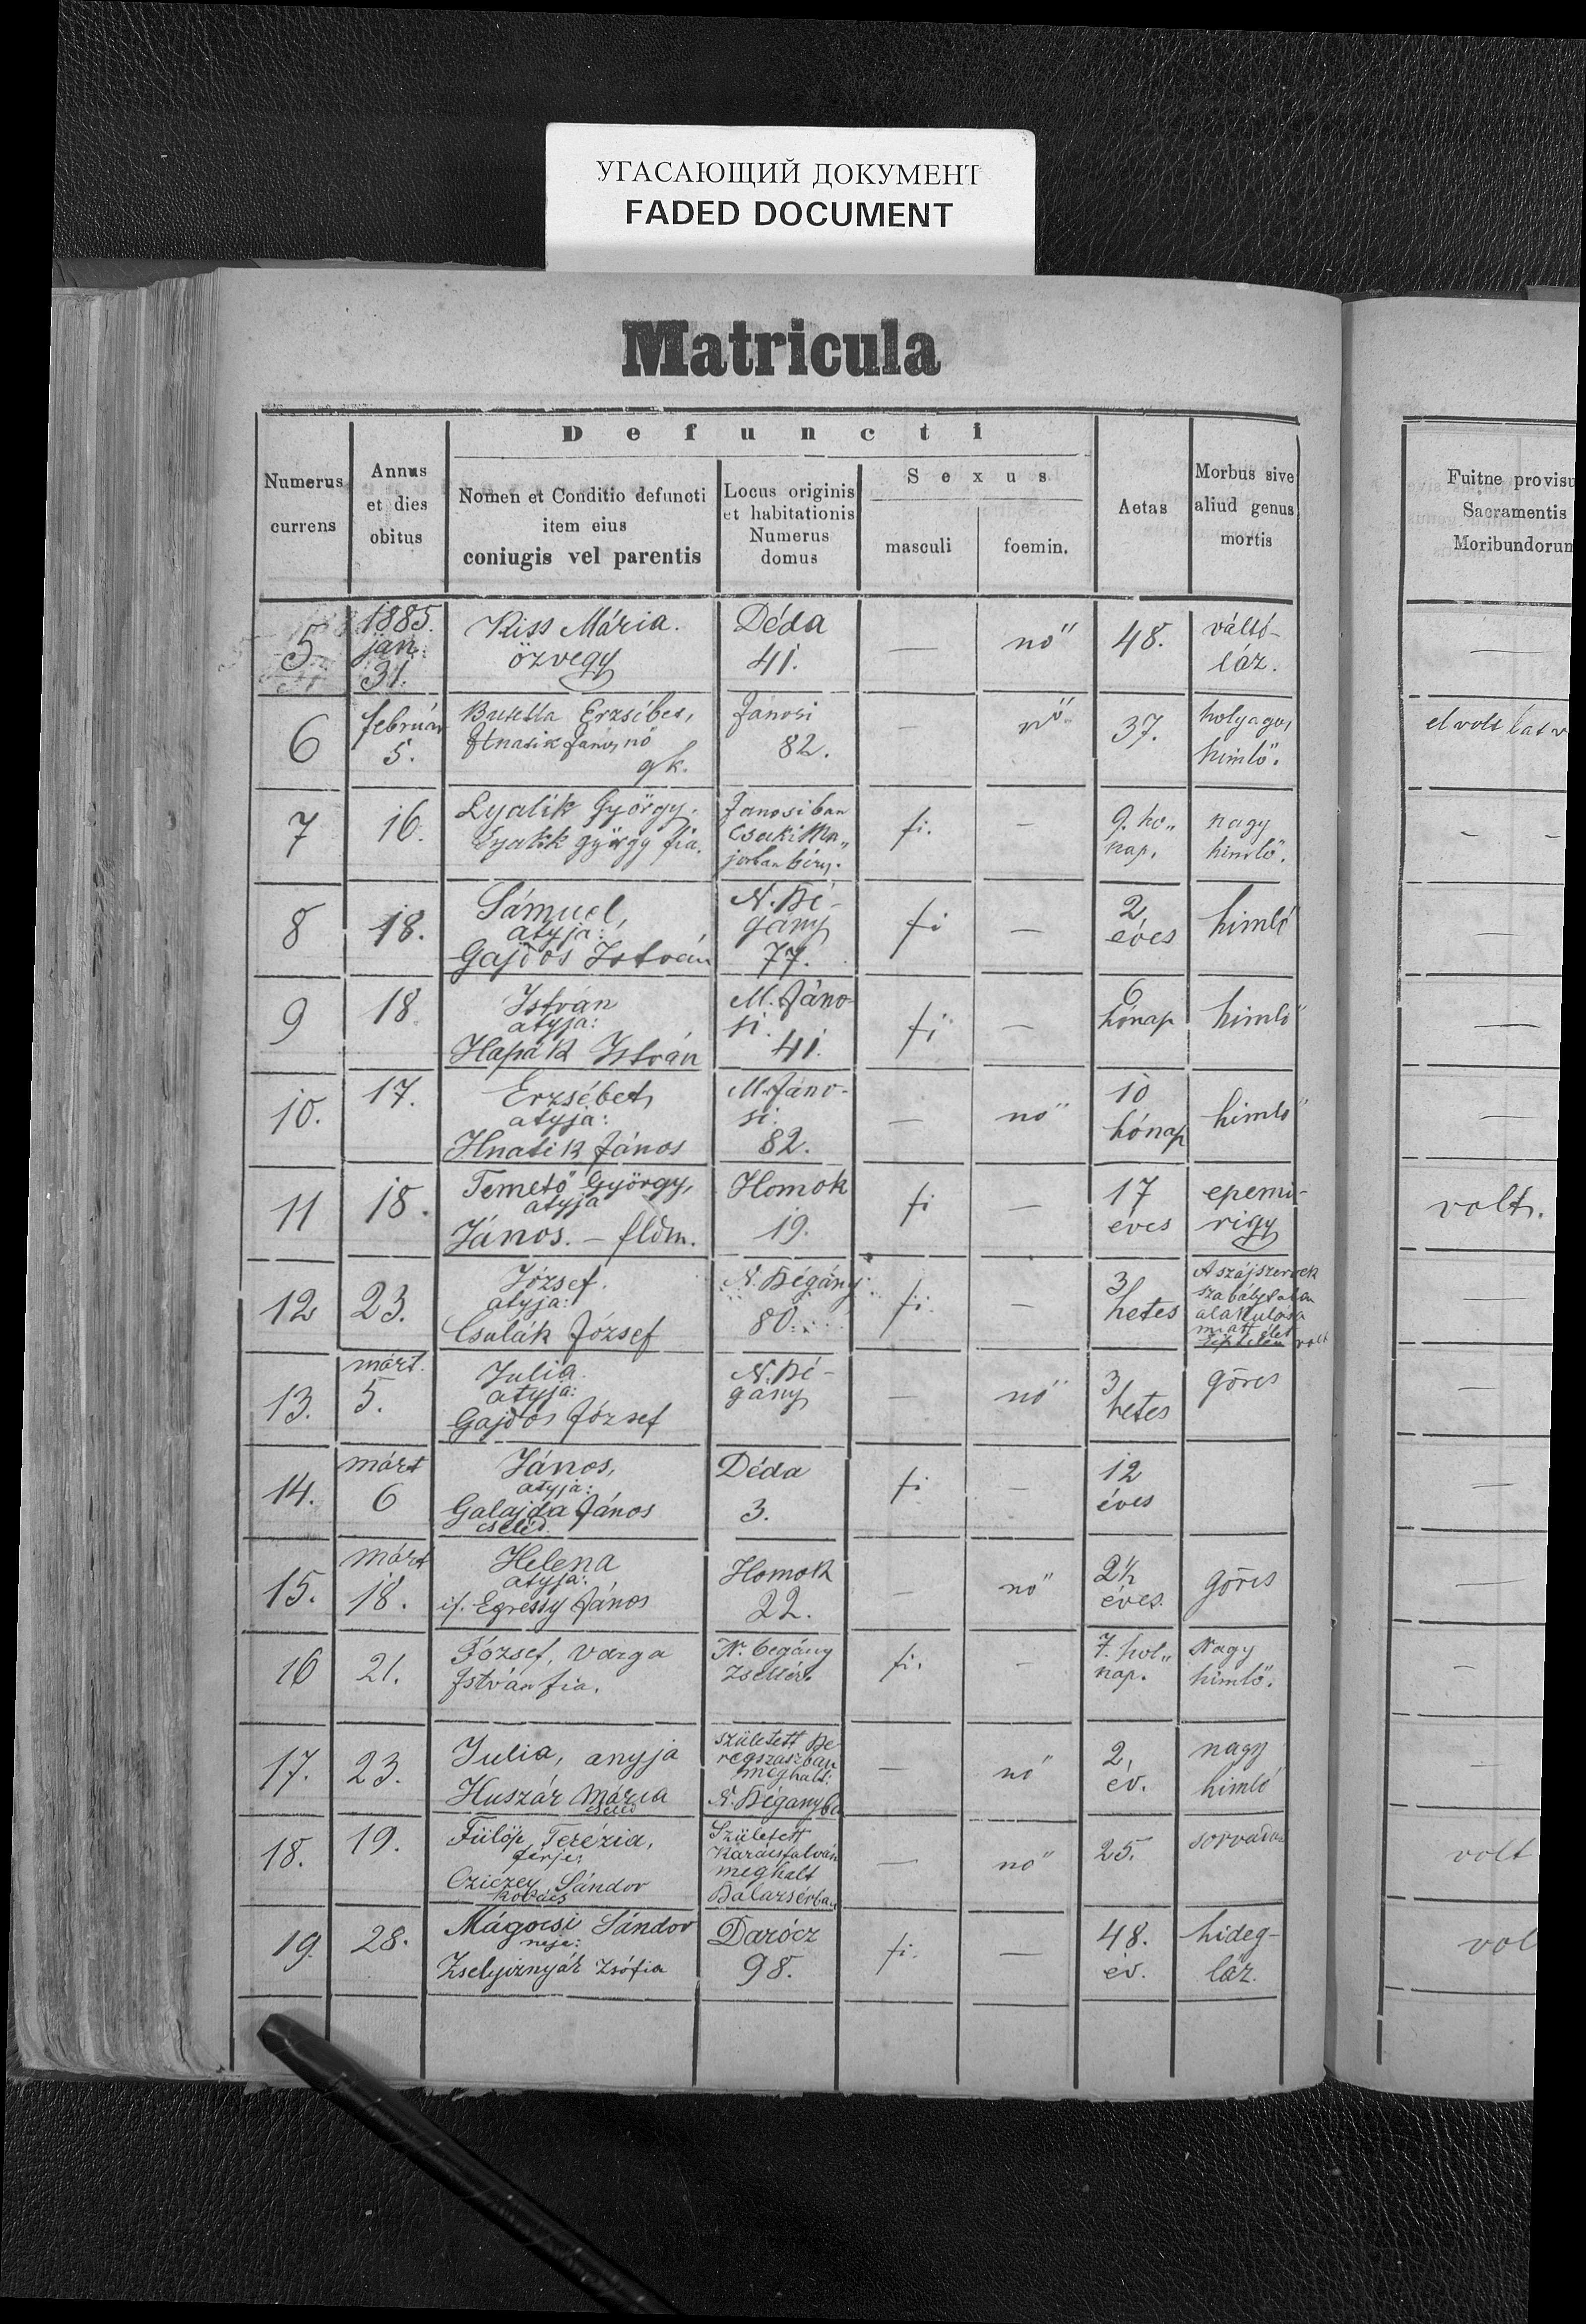 УГАСАЮЩИЙ ДОКУМЕНТ
FADED DOCUMENT
Matricula
Defuncti
Numerus
currens
Annus
et dies
obitus
Nomen et Conditio defuncti
item eius
coniugis vel parentis
Locus originis
et habitationis
Numerus
domus
Sexus
masculi
foemin.
Aetas
Morbus sive
aliud genus
mortis
Fuitne provisu
Sacramentis
Moribundorum
5
1885.
jan.
31.
Kiss Mária.
özvegy
Déda
41.
—
nő
48.
váltó-
láz.
—
6
február
5.
Erzsébet,
Hnatik János nő
gk.
Jánosi
82.
—
nő
37.
holyagos
himlő.
7
16.
Lyalik György.
Lyalik György fia.
Janosiban
Csaki Ma„
jorban béres.
fi.
—
9. hó„
nap.
nagy
himlő.
—
8
18.
Sámuel,
atyja:
Gajdos István
N. Bé-
gány
77.
fi
—
2
éves
himlő
—
9
18
István
atyja:
Hapák István
M. Jáno-
si.
41.
fi
—
6
hónap
himlő
—
10.
17.
Erzsébet,
atyja:
Hnatik János
M. Jáno-
si.
82.
—
nő
10
hónap
himlő
—
11
18.
Temető György,
atyja
János. – fldm.
Homok
19.
fi
—
17
éves
epemi-
rigy
volt.
12
23.
József.
atyja:
Csulák József
N. Bégány
80.
fi.
—
3
hetes
A szájszervek
szabálytalan
alakulása
miatt élet
képtelen volt
—
13.
márt.
5.
Julia.
atyja:
Gajdos József
N. Bé-
gány
—
nő
3
hetes
görcs
—
14.
márt
6
János,
atyja:
Galajda János
cseléd.
Déda
3.
fi
—
12
éves
—
15.
márt
18.
Helena
atyja:
if. Egressy János
Homok
22.
—
nő
2½
éves.
görcs
—
16
21.
József, Varga
István fia.
N. begány
zsellér.
fi.
—
7. hol„
nap.
Nagy
himlő.
—
17.
23.
Julia, anyja
Huszár Mária
cseléd
született Be
regszászban
meghalt:
N. Béganyba
—
nő
2.
év.
nagy
himlő
—
18.
19.
Fülöp Terézia,
férje:
Cziczey Sándor
kovács
Született
Karácsfalván
meghalt
Balazsérban
—
nő
25.
sorvadás
volt
19.
28.
Mágocsi Sándor
neje:
Zsófia
Darócz
98.
fi.
—
48.
év.
hideg-
láz.
vol